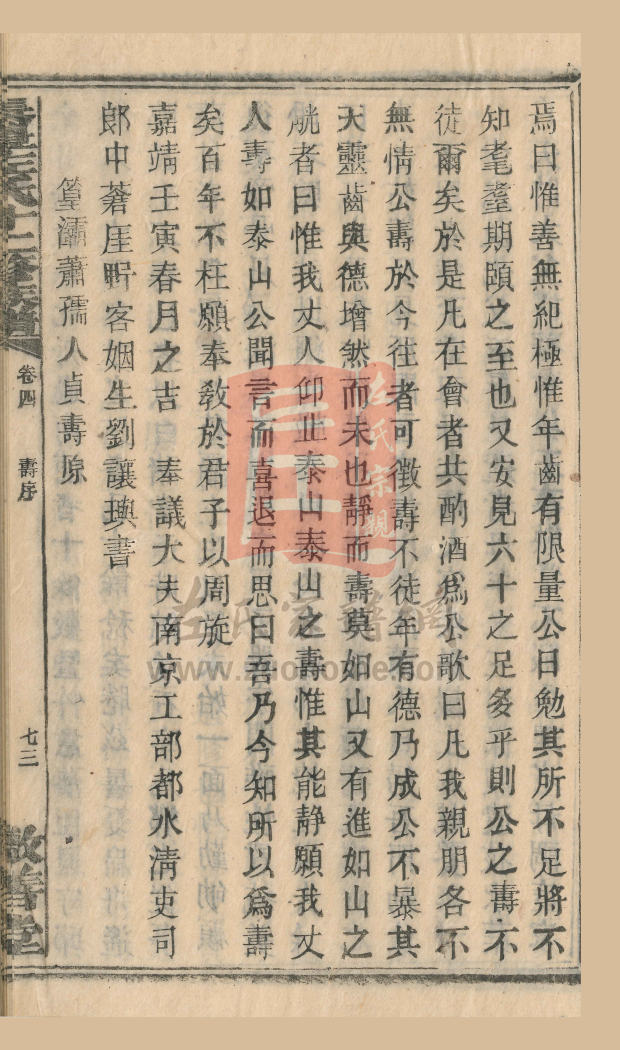 焉曰惟善無紀極惟年齒有限量公日勉其所不足將不
知耄耋期頤之至也又安見六十之足多乎則公之壽不
徒爾矣於是凡在會者共酌酒爲公歌曰凡我親朋各不
無情公壽於今往者可徵壽不徒年有德乃成公不暴其
天靈齒與德增然而未也靜而壽莫如山又有進如山之
觥者曰惟我丈人仰止泰山泰山之壽惟其能靜願我丈
人壽如泰山公聞言而喜退而思曰吾乃今知所以爲壽
矣百年不枉願奉敎於君子以周旋
嘉靖壬寅春月之吉 奉議大夫南京工部都水清吏司
郎中 野客姻生劉讓璵書
篁灞蕭孺人貞壽原
氏十二修族譜
卷四 壽序 七三
敬善堂
左氏宗親
www.zuohome.com